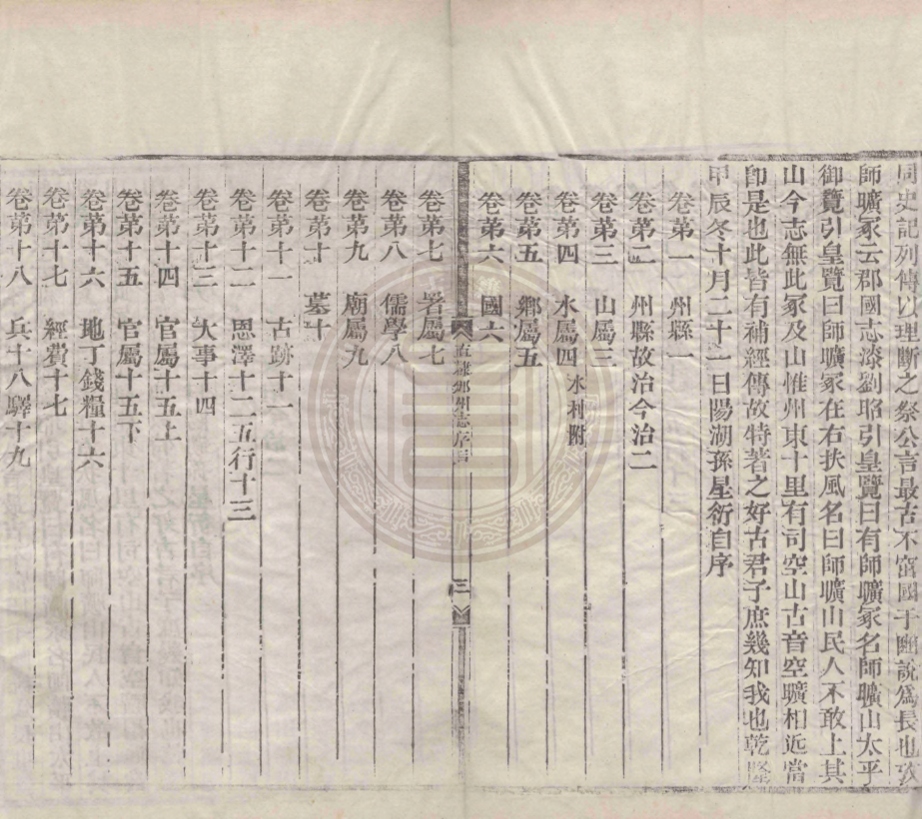 同史記列傳以理斷之祭公言最古不窋國于豳說為長也攷
師曠冢云郡國志漆劉昭引皇覽曰有師曠冢名師曠山太平
御覽引皇覽曰師曠冢在右扶風名曰師曠山民人不敢上其
山今志無此冢及山惟州東十里有司空山古音空曠相近當
即是也此皆有補經傳故特著之好古君子庶幾知我也乾隆
甲辰冬十月二十一日陽湖孫星衍自序
卷第一 州縣一
卷第二 州縣故治今治二
卷第三 山屬三
卷第四 水屬四 水村附
卷第五 鄉屬五
卷第六 國六
直隸邠州志序目 三
卷第七 署屬七
卷第八 儒學八
卷第九 廟屬九
卷第十 墓十
卷第十一 古跡十一
卷第十二 恩澤十二五行十三
卷第十三 大事十四
卷第十四 官屬十五上
卷第十五 官屬十五下
卷第十六 地丁錢糧十六
卷第十七 經費十七
卷第十八 兵十八驛十九